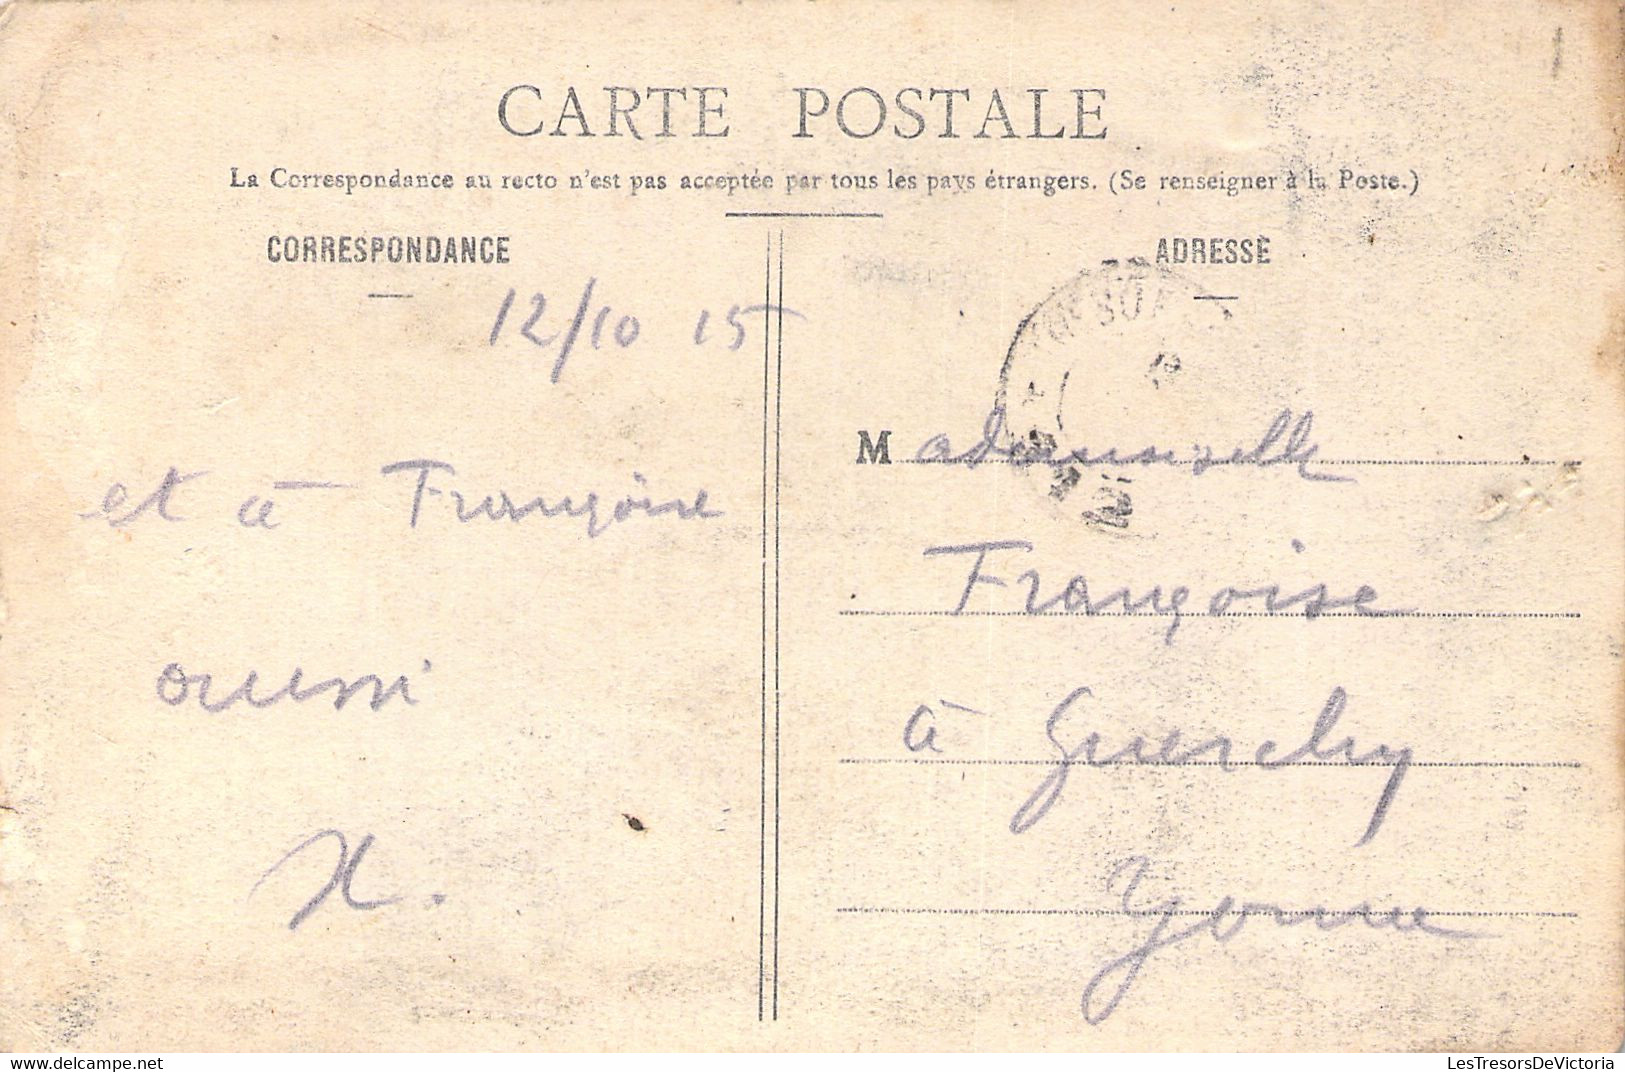 CARTE POSTALE
La Correspondance au recto n'est pas acceptée par tous les pays étrangers. (Se renseigner à la Poste.)
CORRESPONDANCE
12/10 15
et à Françoise
aussi
X.
ADRESSE
Mademoiselle
Françoise
à Guerchy
Yonne
LesTresorsDeVictoria